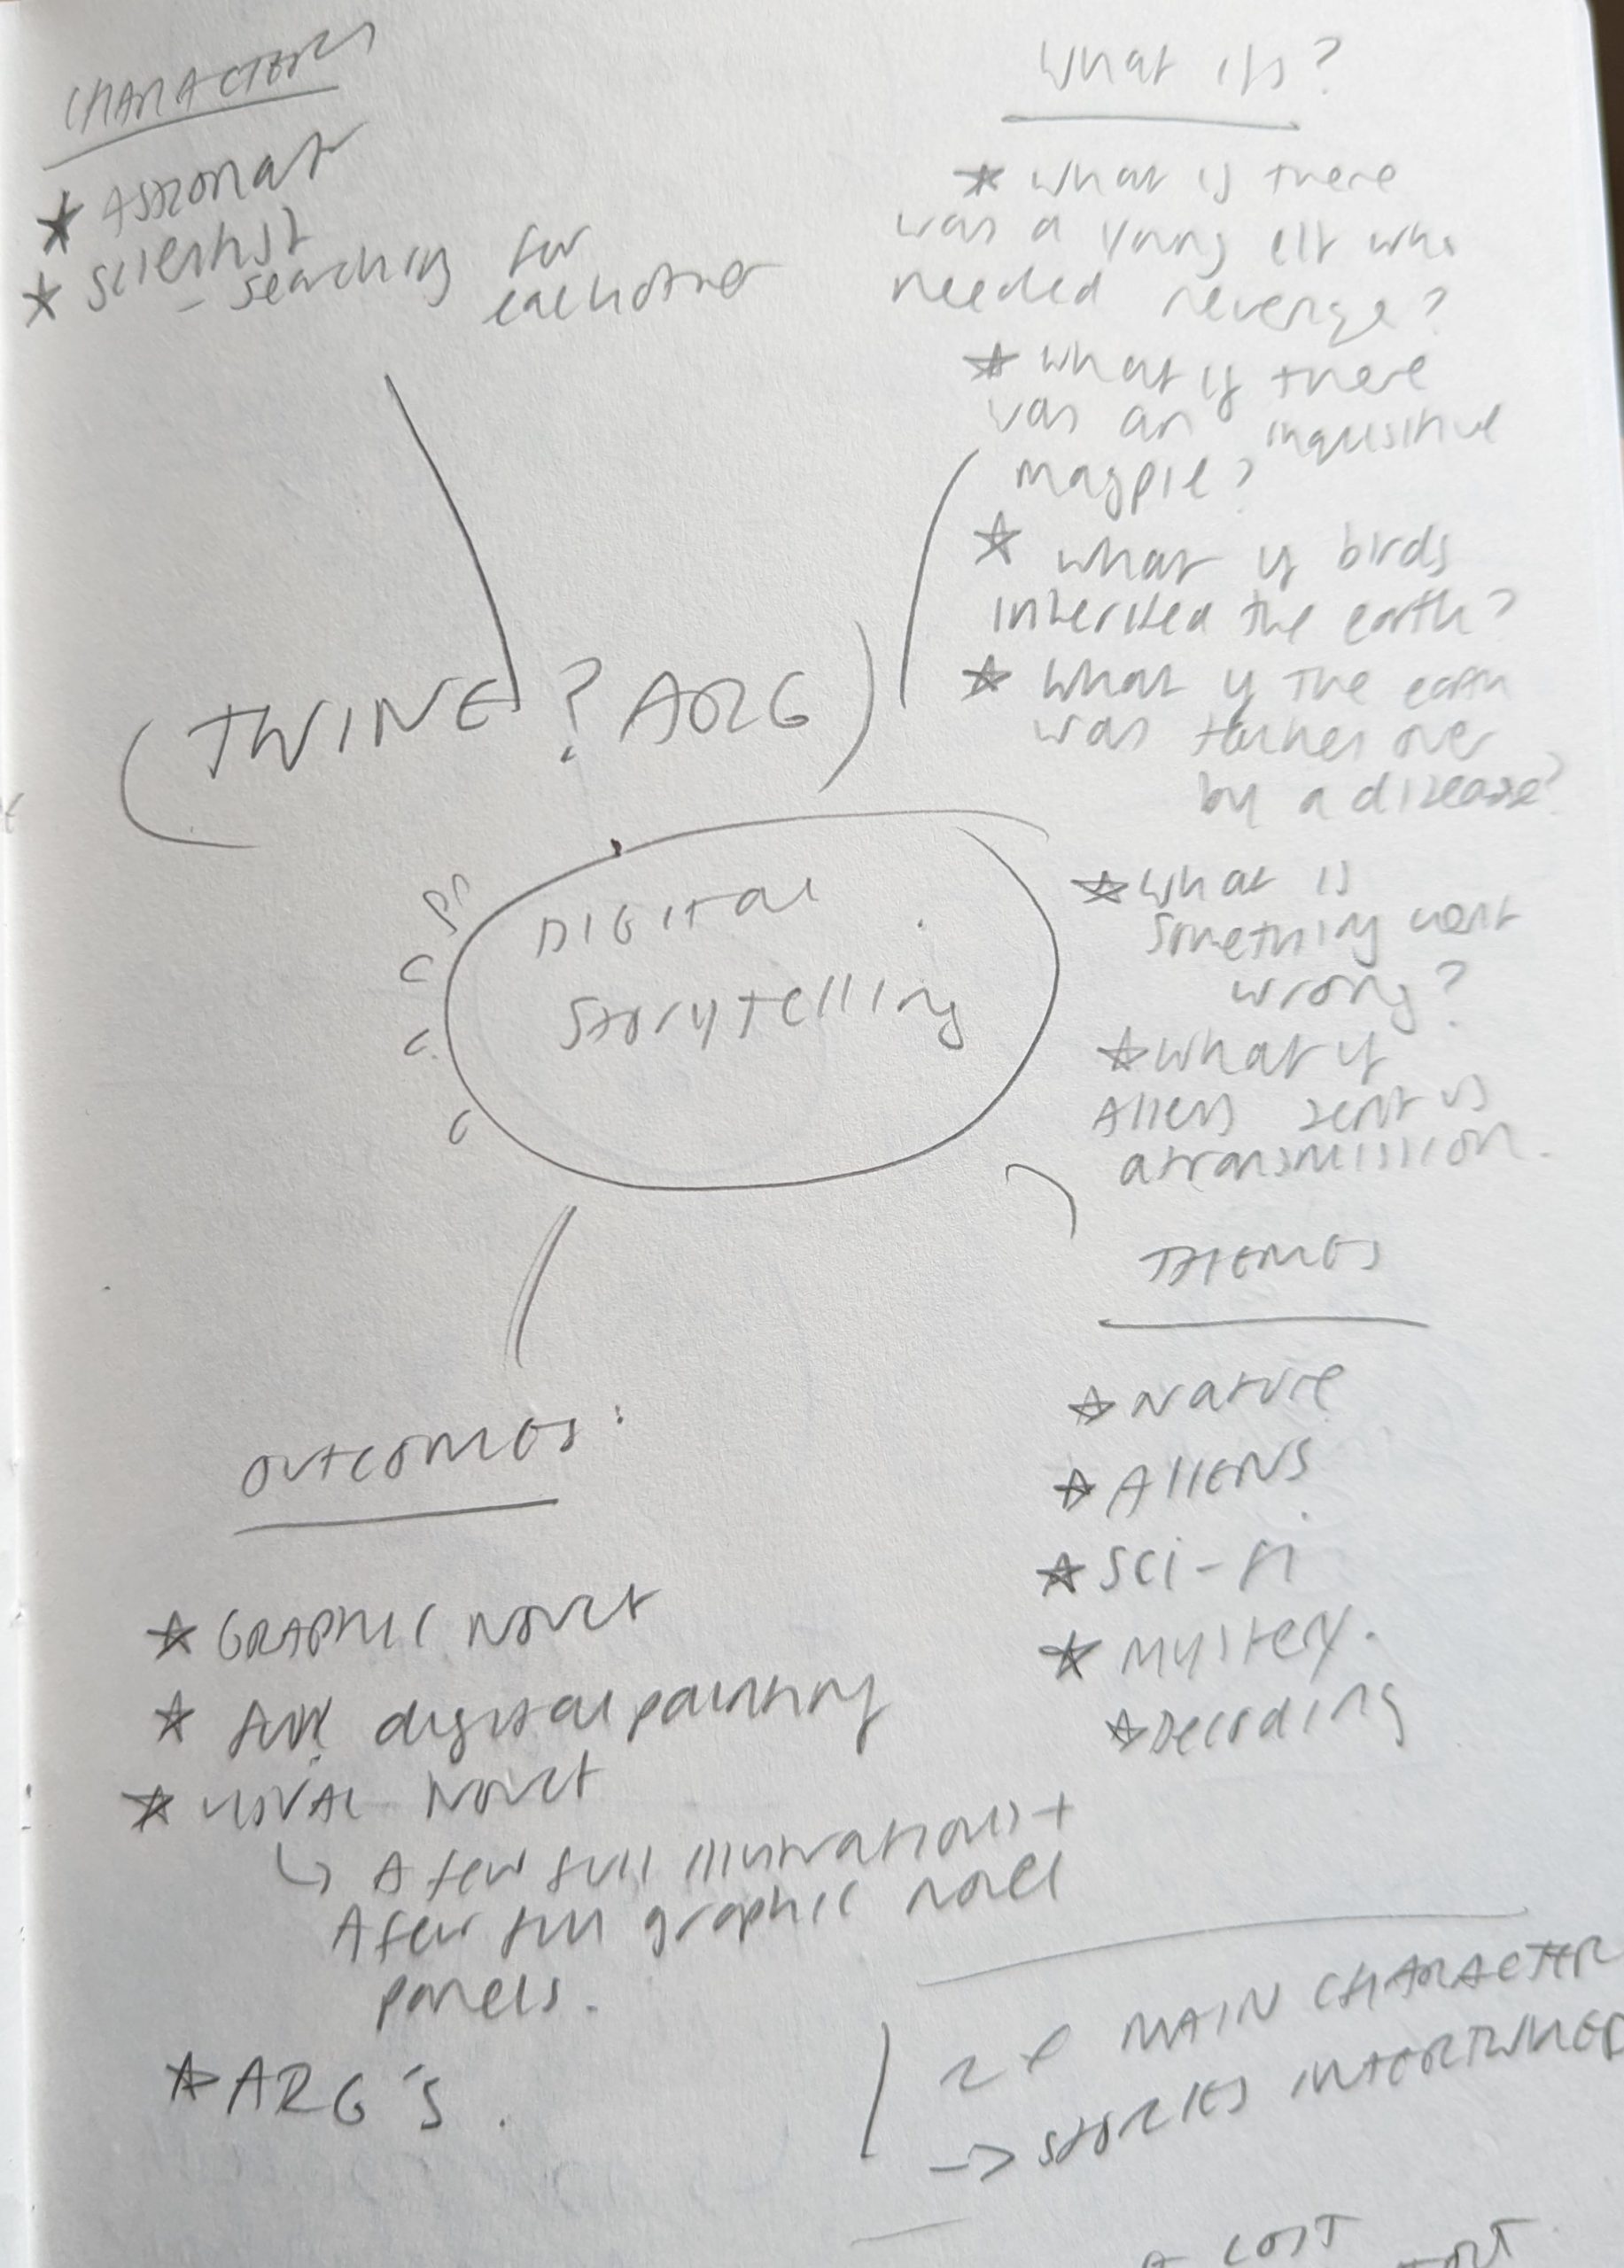 CHARACTERS
★ Astronat
★ Scientist
- searching for
eachother
What ifs?
★ What is there
was a young elf who
needed revenge?
★ What if there
was an inquisitive
magpie?
★ What if birds
inherited the earth?
★ What if the earth
was taken over
by a disease?
★ What is
something went
wrong?
★ What if
Aliens sent us
a transmission.
(TWINE? ARG)
DIGITal
Storytelling
THEMES
★ Nature
★ Aliens
★ Sci-fi
★ Mystery.
★ Decoding
OUTCOMES:
★ GRAPHIC NOVEL
★ full digital painting
★ VISUAL NOVEL
↳ A few full illustrations +
A few full graphic novel
panels.
★ ARG's.
2x MAIN CHARACTER
-> STORIES INTERTWINED
A LOST